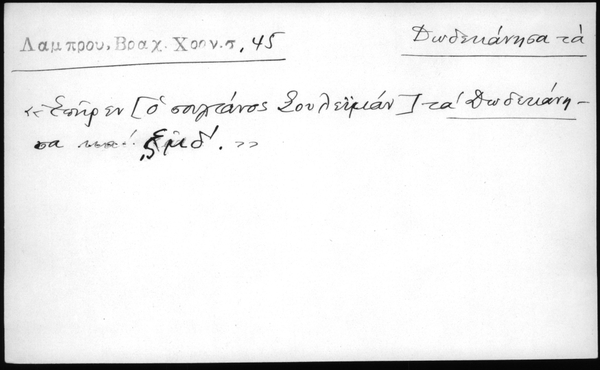 Λαμπρου, Βραχ. Χρον. σ, 45
Δωδεκάνησα τά
«Ἐπῆρεν [ὁ σουλτάνος Σουλεϊμάν] τά Δωδεκάνη-
σα ͵ςμδ'. »